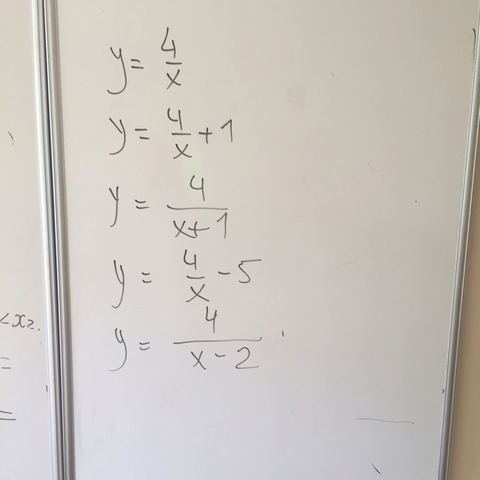 y = 4/x
y = 4/x + 1
y = 4/(x+1)
y = 4/x - 5
y = 4/(x-2)